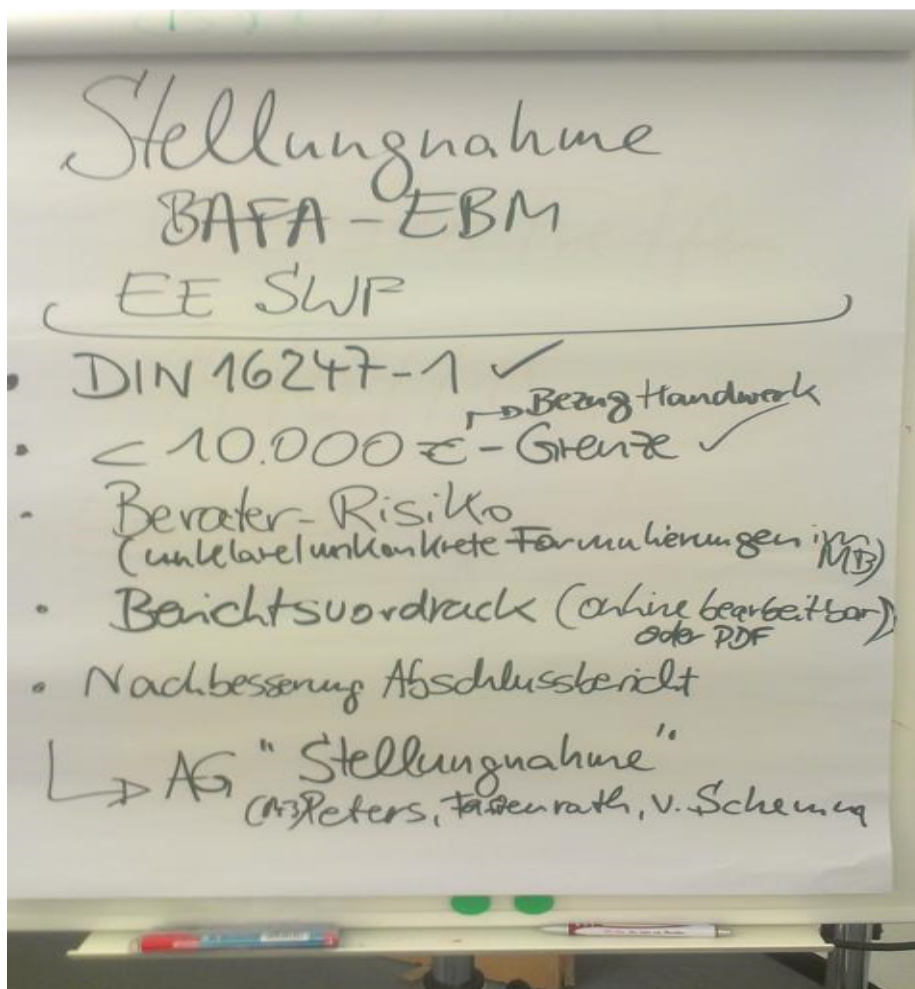 Stellungnahme
BAFA - EBM
EE SWP
• DIN 16247-1 ✓
→ Bezug Handwerk
• < 10.000 € - Grenze ✓
- Berater-Risiko
(unklare/unkonkrete Formulierungen im MB)
• Berichtsvordruck (online bearbeitbar)
oder PDF
• Nachbesserung Abschlussbericht
↳ AG "Stellungnahme"
Peters, v.